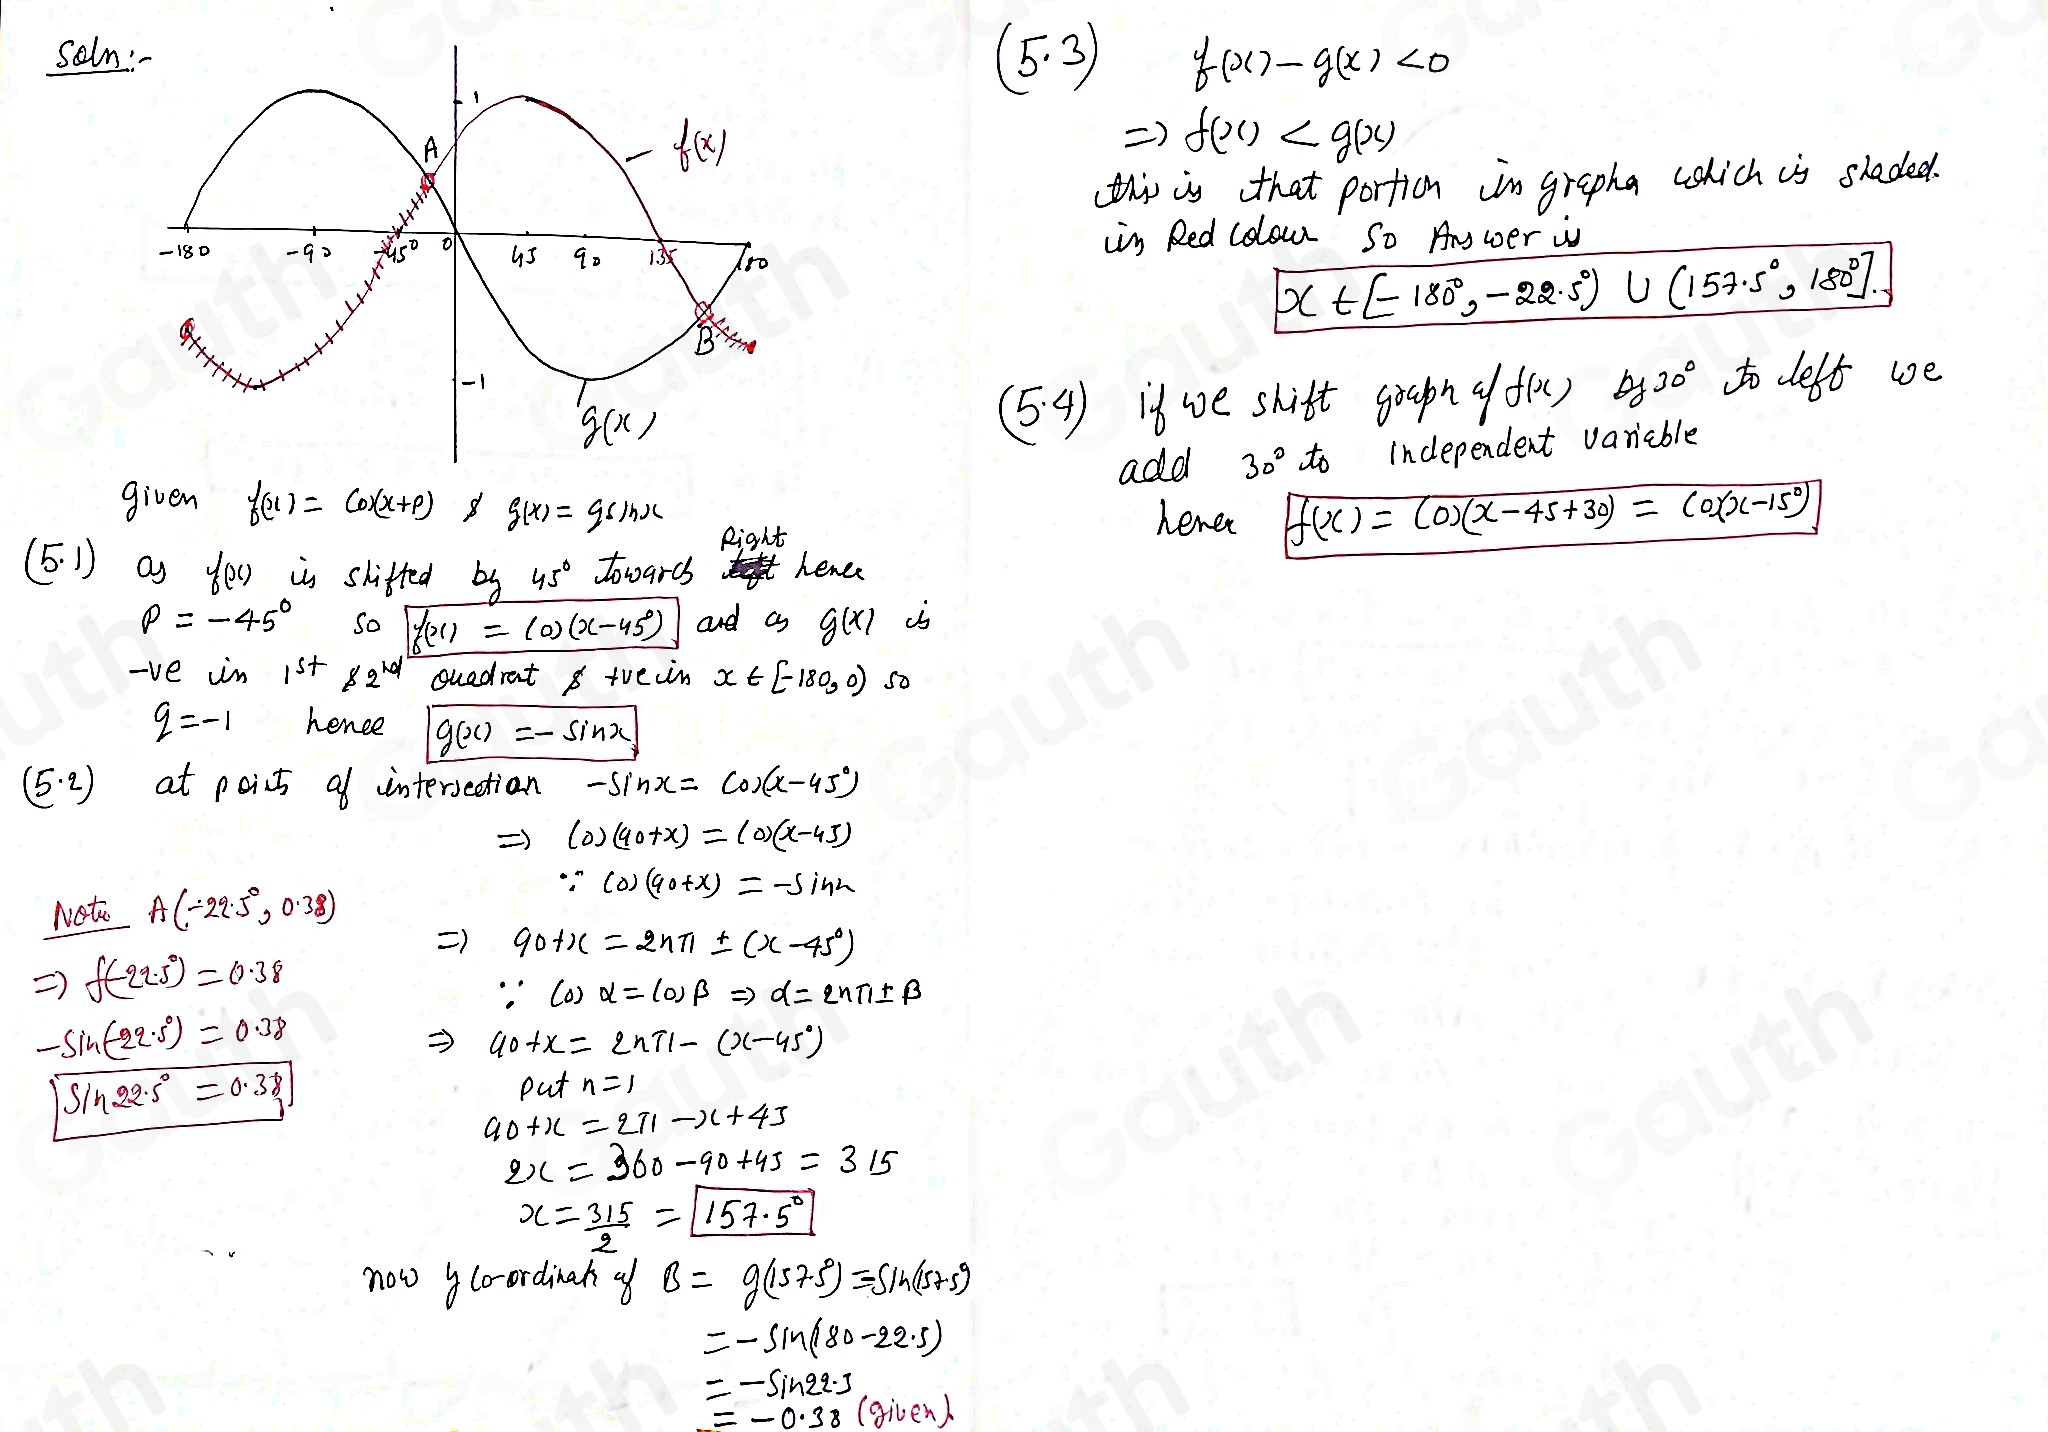 Soln:-
1
A
f(x)
-180 -90 -45° 0 45 90 135 180
B
-1
g(x)
given f(x) = Cos(x+p) & g(x) = qsinx
(5.1) as f(x) is shifted by 45° towards Right hence
P = -45° so f(x) = Cos(x-45°) and as g(x) is
-ve in 1st & 2nd quadrent & +ve in x ∈ [-180, 0) so
q = -1 hence g(x) = - sinx
(5.2) at points of intersection -sinx = Cos(x-45°)
=> Cos(90+x) = Cos(x-45)
∵ Cos(90+x) = -sinx
=> 90+x = 2nπ ± (x-45°)
∵ Cos α = Cos β => α = 2nπ ± β
=> 90+x = 2nπ - (x-45°)
put n=1
90+x = 2π - x + 45
2x = 360 - 90 + 45 = 315
x = 315/2 = 157.5°
Note A(-22.5°, 0.38)
=> f(-22.5°) = 0.38
-Sin(-22.5°) = 0.38
Sin22.5° = 0.38
now y co-ordinate of B = g(157.5°) = -Sin(157.5°)
= - Sin(180-22.5)
= - Sin22.5
= - 0.38 (given)
(5.3) f(x) - g(x) < 0
=> f(x) < g(x)
this is that portion in grapha which is shaded.
in Red colour so Answer is
x ∈ [-180°, -22.5°) U (157.5°, 180°].
(5.4) if we shift graph of f(x) by 30° to left we
add 30° to independent variable
hence f(x) = Cos(x-45+30) = Cos(x-15°)
Gauth